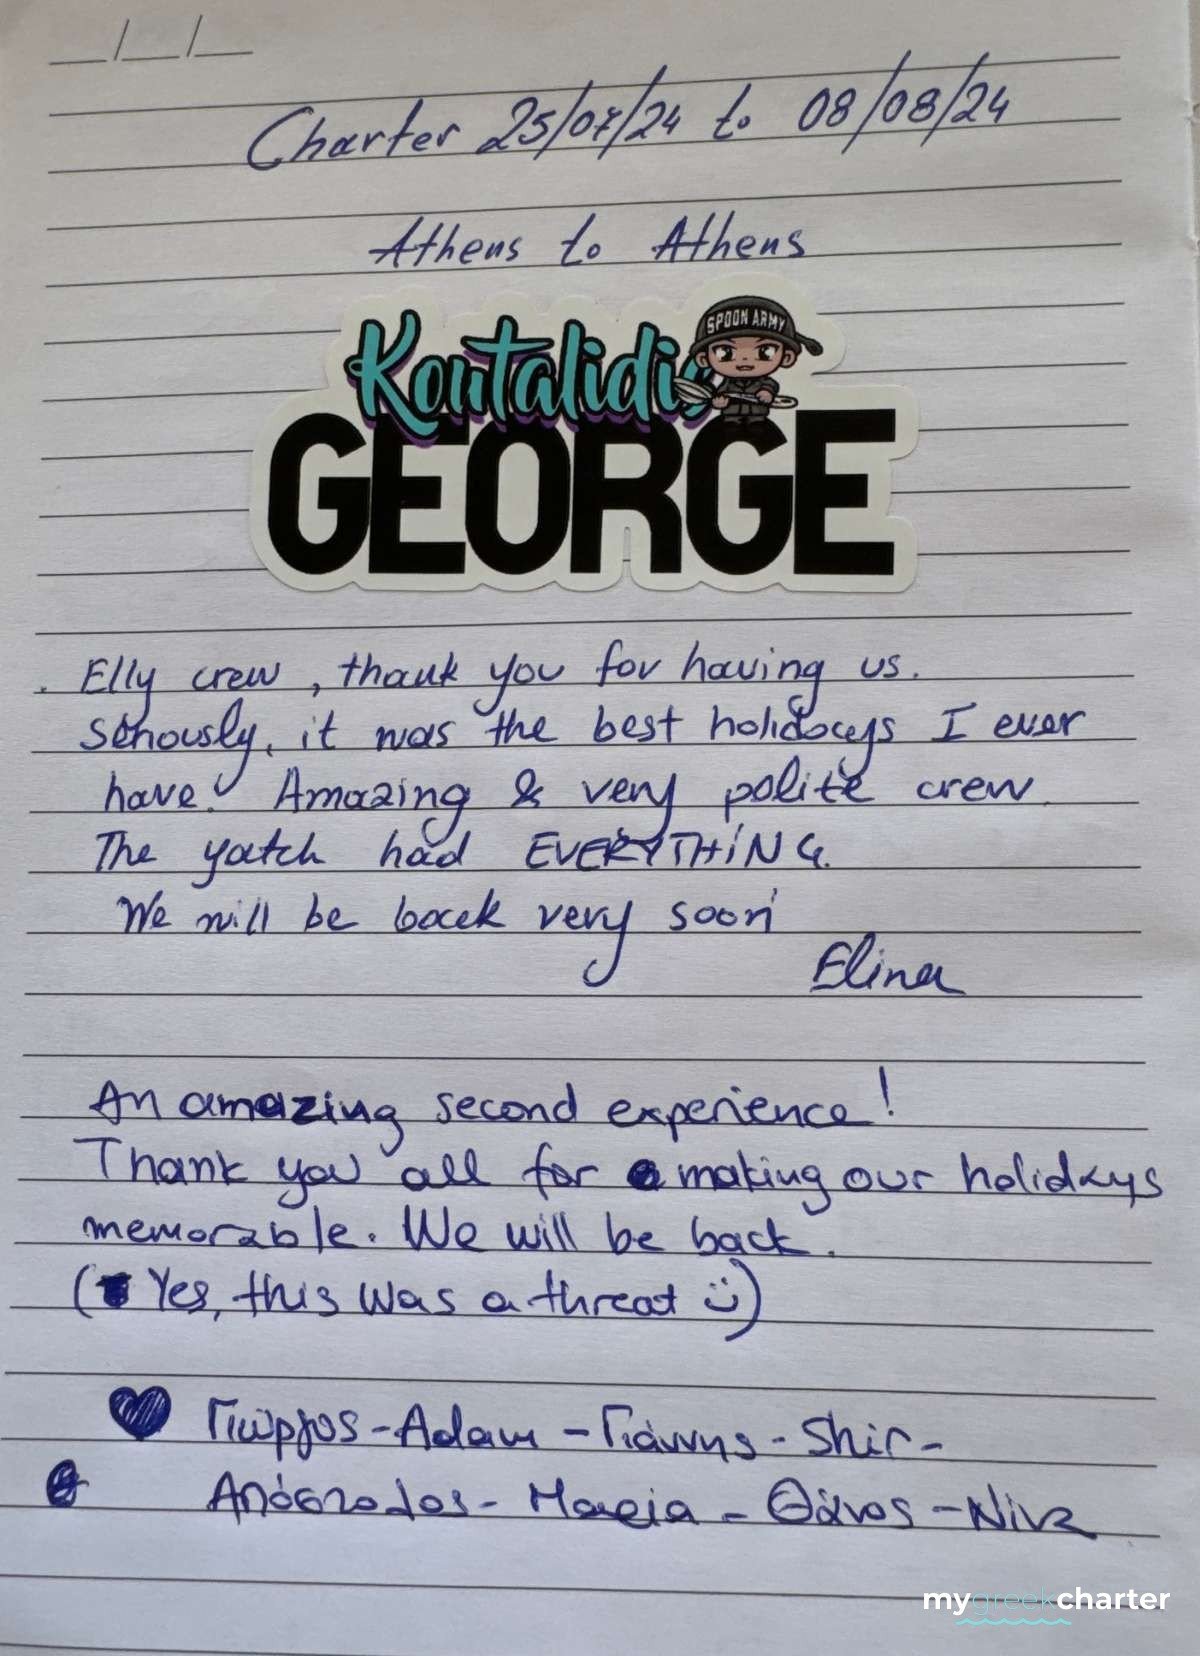 __/__/__
Charter 25/07/24 to 08/08/24
Athens to Athens
SPOON ARMY
Koutalidis
GEORGE
. Elly crew, thank you for having us.
Seriously, it was the best holidays I ever
have! Amazing & very polite crew.
The yatch had EVERYTHING.
We will be back very soon
Elina
An amazing second experience!
Thank you all for making our holidays
memorable. We will be back.
(Yes, this was a threat ☺)
♥ Γιώργος - Adam - Γιάννης - Shir -
Απόστολος - Μαρία - Θάνος - Νίνα
mygreekcharter